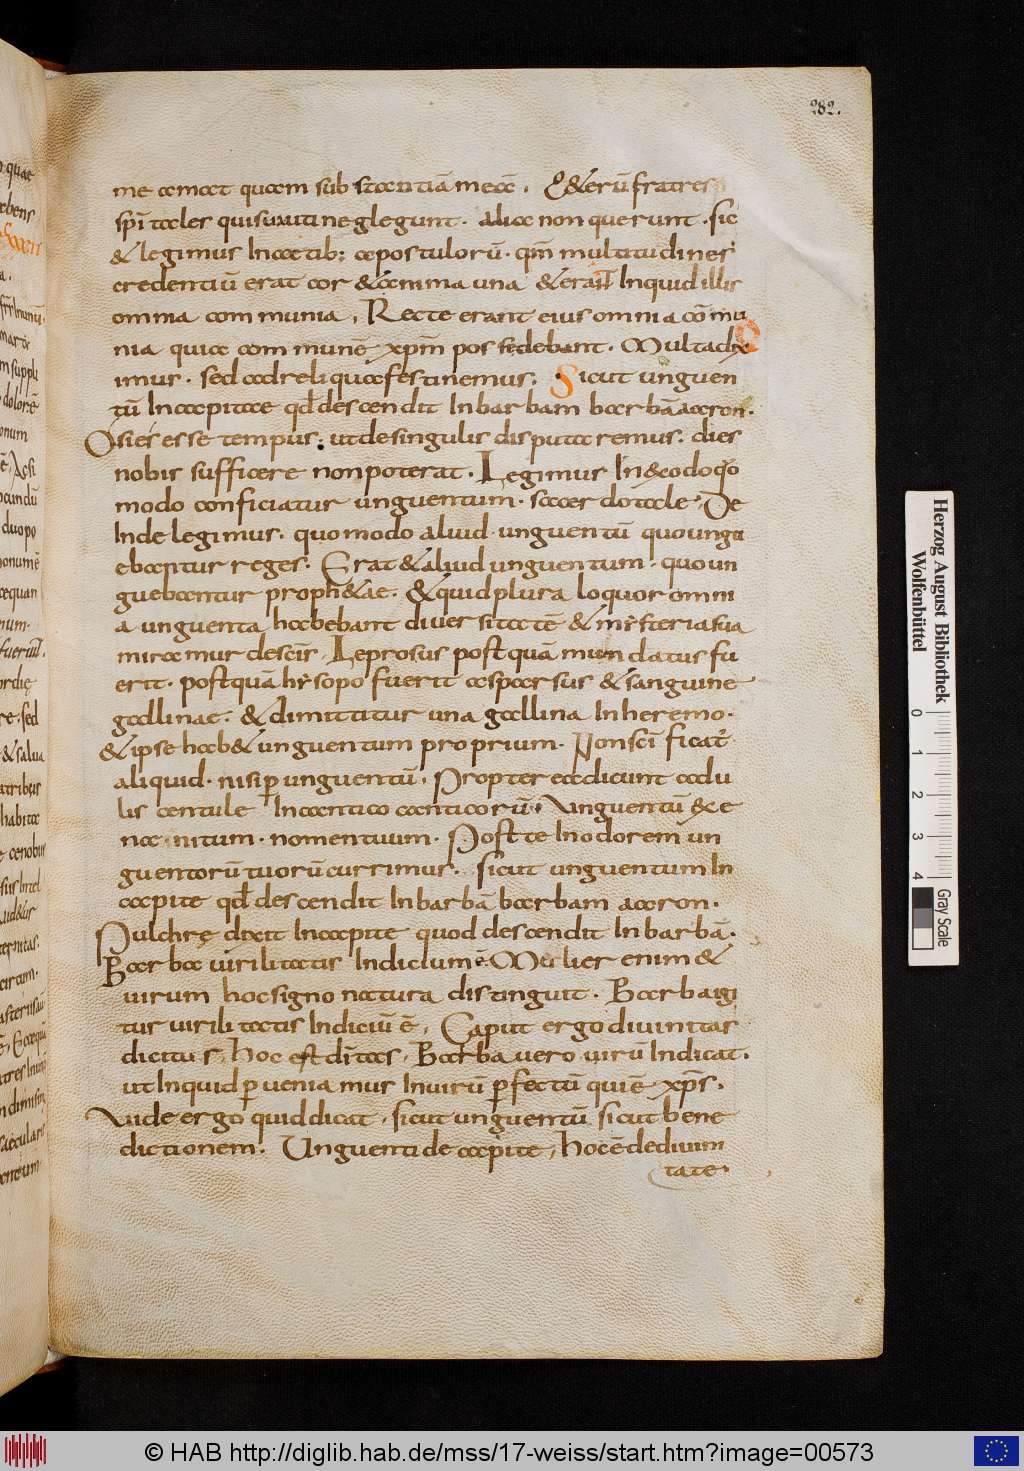 282.
me amat quam sub stantiã meã. Q&erũ fratres
spĩtales qui sua uti neglegunt. alia non querunt. sic
& legimus In actib; apostulorũ. qm̃ multitudines
credentiũ erat cor & anima una & erañt Inquid illis
omnia communia, Recte erant eius omnia cõmu
nia quia communẽ xp̃m possedebant. Multa dix
imus. sed ad reliqua festinemus. Sicut unguen
tũ In capitae qd̃ descendit In barbam barbã aaron.
O si es esse tempus. ut de singulis disputaremus. dies
nobis sufficere non poterat. Legimus In &odo quo
modo conficiatur unguentum. sacerdotale. De
Inde legimus. quomodo aliud. unguentũ quo ungu
ebantur reges. Erat & aliud unguentum. quo un
guebantur proph&ae. & quid plura loquor omni
a unguenta habebant diuersitatẽ & mysteria sua
miramur descĩs. Leprosus postquã mundatus fu
erit. postquã hysopo fuerit asparsus & sanguine
gallinae. & dimittitur una gallina In heremo.
& ipse hab& unguentum proprium. Non scĩficatur
aliquid. nisi p unguentũ. Propterea dicunt adu
liscentule In cantico canticorũ. Unguentũ &e
na nitum. nomen tuum. Post te In odorem un
guentorũ tuorũ currimus. sicut unguentum In
capite qd̃ descendit In barbã barbam aaron.
Pulchrę dixit In capite quod descendit In barbã.
Barba uirilitatis Indicium ẽ. Mulier enim &
uirum hoc signo natura distinguit. Barba igi
tur uirilitatis Indiciũ ẽ, Caput ergo diuinitas
dicitur, hoc est dĩtas, Barba uero uirũ Indicat.
ut Inquid pueniamus In uirũ pfectũ qui ẽ xp̃s.
Uide ergo quid dicat. sicut unguentũ sicut bene
dictionem. Unguenti de capite, hoc ẽ de diuini
tate.
Herzog August Bibliothek
Wolfenbüttel
0 1 2 3 4
Gray Scale
© HAB http://diglib.hab.de/mss/17-weiss/start.htm?image=00573